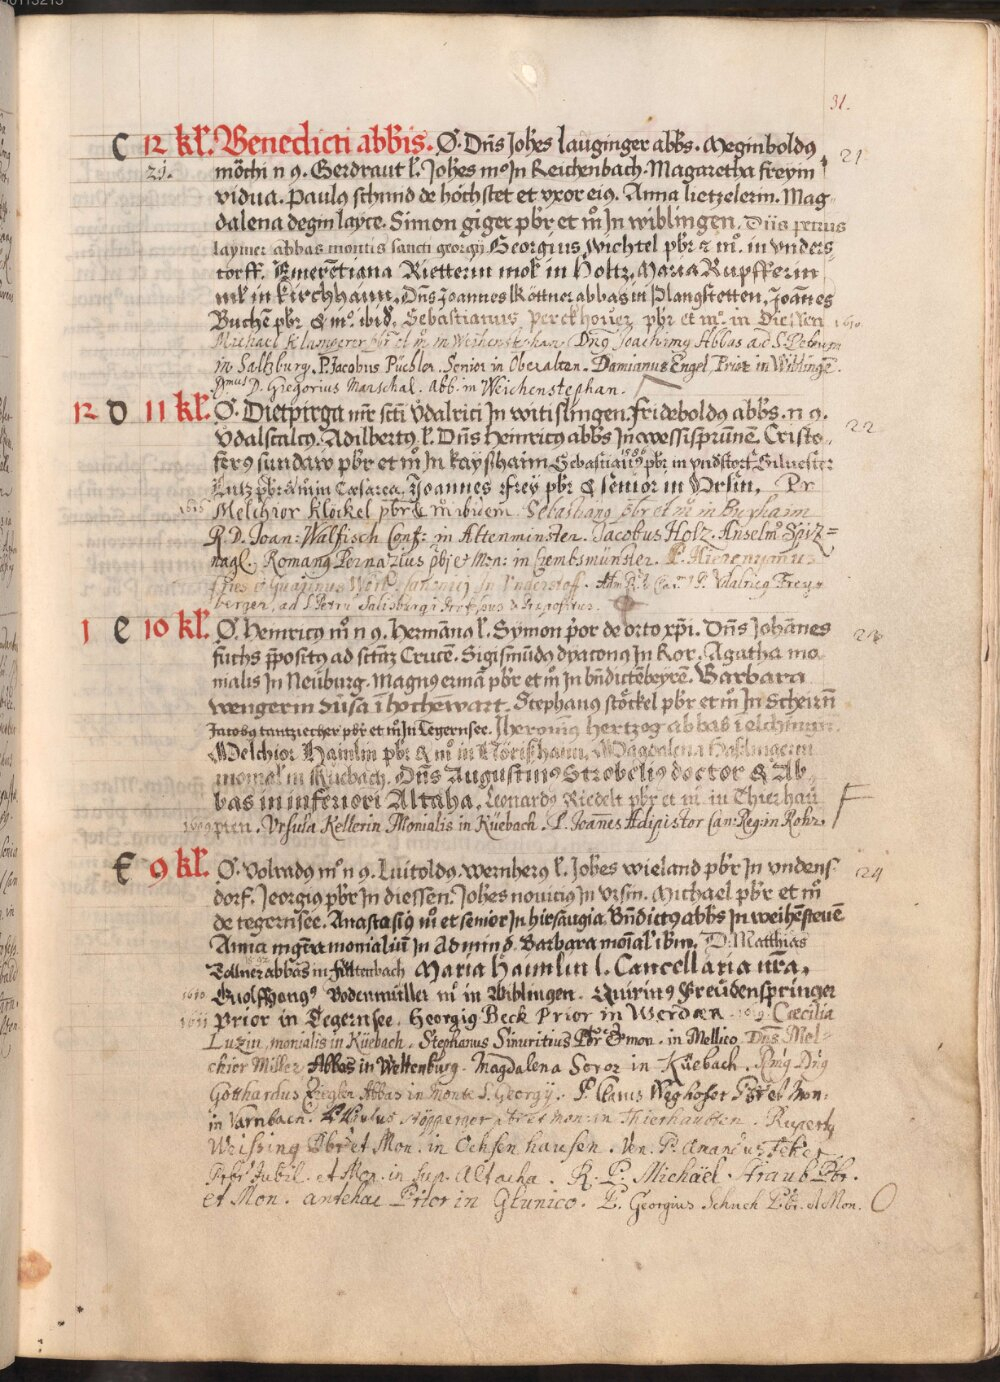 31.
C 12 kl. Benedicti abbis. O. Dns Johes lauginger abbs. Meginboldus 21
21. mochi n 9. Gerdraut l. Johes mo In Reichenbach. Magaretha freyin
vidua. Paulus schmid de höchstet et vxor eius. Anna lietzelerin. Mag
dalena degin layce. Simon giger pbr et mo In wiblingen. Dns petrus
laymer abbas montis sancti georgij Georgius Wichtel pbr & mo. in vnders
torff. Emerētiana Rietterin mol in Holtz. Maria Rupfferin
in kirchhaim. Dns Joannes Köttner abbas in Plangstetten, Joānes
Buche pbr & mo. ibid. Sebastianus Perckhouer pbr et mo. in Diessen 1610
Michael Klamperer pbr et m in Weihenstephan. Dns Joachimus Abbas ad S. Petrum
in Saltzburg. P. Jacobus Püchler. Senior in Oberalten. Damianus Engel Prior in Wiblingē.
Rmus D. Gregorius Manschal. abb. in Weichenstephan.
12 D 11 kl. O. Dietpirga mr scti Vdalrici In witislingen. Frideboldus abbs. n 9. 22
Vdalscalcus. Adilbertus l. Dns Heinricus abbs In wessispruñe. Cristo
ferus sundaw pbr et mo In kayshaim Sebastianus pbr in vndstorf Siluester
Lutz pbr & m in Cæsarea. Joannes Frey pbr & senior in Vrsin. Pr
Melchior Klöckel pbr & m ibidem. Sebastianus pbr et m in Byrhaim
R. D. Joan: Walfisch Conf: in Altenminster. Jacobus Holz. Anselm Spiz=
nagl. Romanus Pernazius pbr et Mon: in Crembsmünster. P. Hieronymus
in Vnderstorff. Adm R. P. Vdalricus Frey
berger, ad S. Petru Salisburgi Professus & Praepositus.
1 e 10 kl. O. Heinricus mo n 9. Hermānus l. Symon por de orto xpi. Dns Johānes 23
fuchs ppositus ad sctam Crucē. Sigismūdus dyaconus In Ror. Agatha mo
nialis In Neüburg. Magnus ermā pbr et mo In bndictēbeyrē. Barbara
wengerin In hochēwart. Stephanus stöckel pbr et mo In Scheirn
Jacobus tantziecher pbr et mo In Tegernsee. Iheronimus hertzog abbas i elchingen
Melchior Haimlin pbr & mo in Magdalena Haslingerin
monial in Kuebach. Dns Augustinus Strobelius doctor & Ab
bas in inferiori Altaha. Leonardus Riedelt pbr et m. in Thierhau
1609 pten. Vrsula Kellerin Monialis in Küebach. P. Joānes Adipistor Can: Reg: in Rohr.
F 9 kl. O. Volradus mo n 9. Luitoldus. Wernherus l. Johes wieland pbr In vndens 24
dorf. Jeorgius pbr In diessen. Johes nouicius In vrsin. Michael pbr et mo
de tegernsee. Anastasius mo et senior In hirsaugia. Bndictus abbs In weihesteuē
Anna mgra monialiū In Admind. Barbara moial' ibm. D: Matthias
Zollner abbas in fulttenbach Maria Haimlin l. Cancellaria nra.
1610 Guolffgangus Bodenmüller mo in Wiblingen. Quirinus Freüdenspringer
1611 Prior in Tegernsee. Georgius Beck Prior in Werdæa. Cæcilia
Luzin, monialis in Küebach. Stephanus Simuritius Pbr & mon. in Mellico. Dns Mel-
chior Miller Abbas in Weltenburg. Magdalena Soror in Küebach. Rmus Dns
Gotthardus Ziegler Abbas in Monte S. Georgij. P. Clarus Weghofer Pbr et Mon:
in Varnbach. Höpperger pbr et mon: in Thierhaupten. Rupertus
Weissing Pbr et Mon. in Ochsenhausen. Ven. P. Amandus
Pbr Jubil. et Mon. in Sup. Altacha. R. P. Michael Straub Pbr.
et Mon. antehac Prior in Glunico. P. Georgius Schuch Pbr. et Mon.